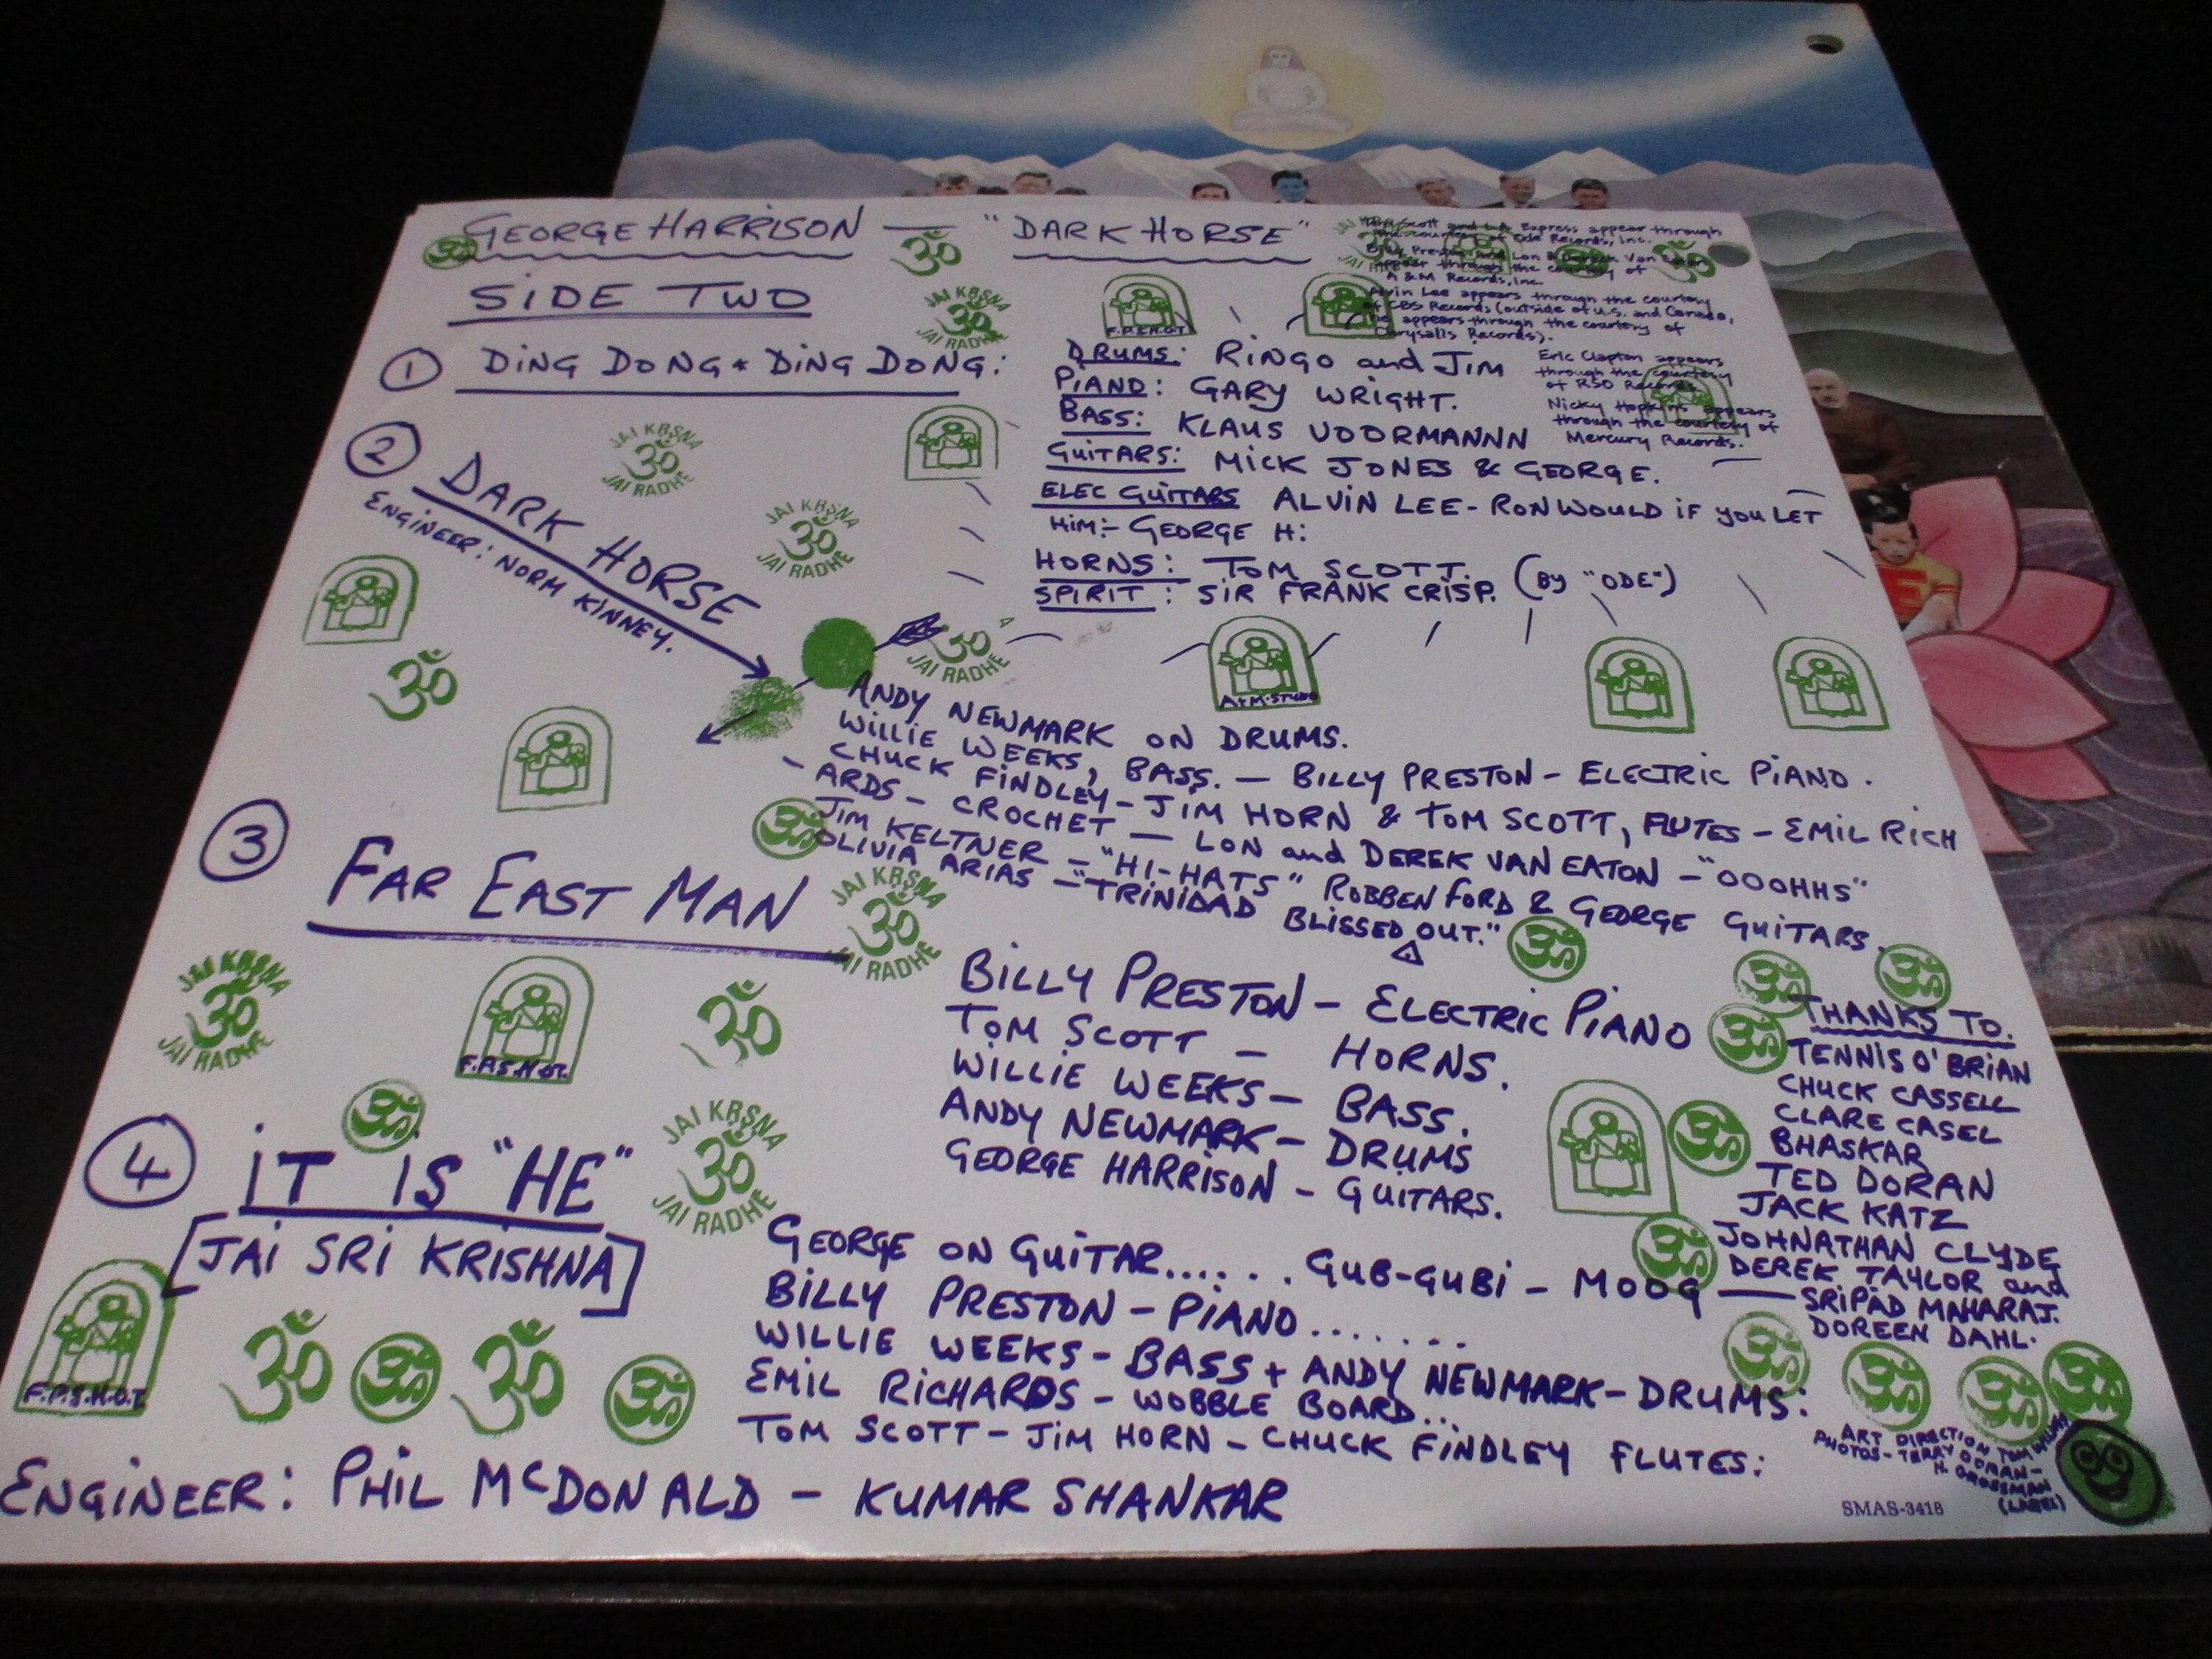 GEORGE HARRISON — "DARK HORSE"
SIDE TWO
Tom Scott and L.A. Express appear through
the courtesy of Ode Records, Inc.
Billy Preston and Lon & Derrek Van Eaton
appear through the courtesy of
A & M Records, Inc.
Alvin Lee appears through the courtesy
of CBS Records (outside of U.S. and Canada,
he appears through the courtesy of
Chrysalis Records).
Eric Clapton appears
through the courtesy
of RSO Records.
Nicky Hopkins appears
through the courtesy of
Mercury Records.
① DING DONG * DING DONG:
DRUMS: RINGO and JIM
PIANO: GARY WRIGHT.
BASS: KLAUS VOORMANNN
GUITARS: MICK JONES & GEORGE.
ELEC GUITARS ALVIN LEE - RON WOULD IF YOU LET
HIM:- GEORGE H:
HORNS: TOM SCOTT.
SPIRIT: SIR FRANK CRISP. (BY "ODE")
② DARK HORSE
ENGINEER: NORM KINNEY.
ANDY NEWMARK ON DRUMS.
WILLIE WEEKS, BASS. — BILLY PRESTON - ELECTRIC PIANO.
CHUCK FINDLEY - JIM HORN & TOM SCOTT, FLUTES - EMIL RICH
- ARDS - CROCHET — LON and DEREK VAN EATON - "OOOHHS"
JIM KELTNER - "HI-HATS" ROBBEN FORD & GEORGE GUITARS.
OLIVIA ARIAS - "TRINIDAD BLISSED OUT."
③ FAR EAST MAN
BILLY PRESTON - ELECTRIC PIANO
TOM SCOTT - HORNS.
WILLIE WEEKS - BASS.
ANDY NEWMARK - DRUMS
GEORGE HARRISON - GUITARS.
④ IT IS "HE"
[JAI SRI KRISHNA]
GEORGE ON GUITAR...... GUB-GUBI - MOOG —
BILLY PRESTON - PIANO.......
WILLIE WEEKS - BASS + ANDY NEWMARK - DRUMS:
EMIL RICHARDS - WOBBLE BOARD...
TOM SCOTT - JIM HORN - CHUCK FINDLEY FLUTES:
ENGINEER: PHIL McDONALD - KUMAR SHANKAR
THANKS TO.
TENNIS O'BRIAN
CHUCK CASSELL
CLARE CASEL
BHASKAR
TED DORAN
JACK KATZ
JOHNATHAN CLYDE
DEREK TAYLOR and
SRIPAD MAHARAJ.
DOREEN DAHL.
ART DIRECTION TOM WILKES
PHOTOS - TERRY DORAN -
H. GROSSMAN
(LABEL)
SMAS-3418
ॐ
JAI KRSNA
ॐ
JAI RADHE
F.P.S.H.O.T.
A+M. STUDIO